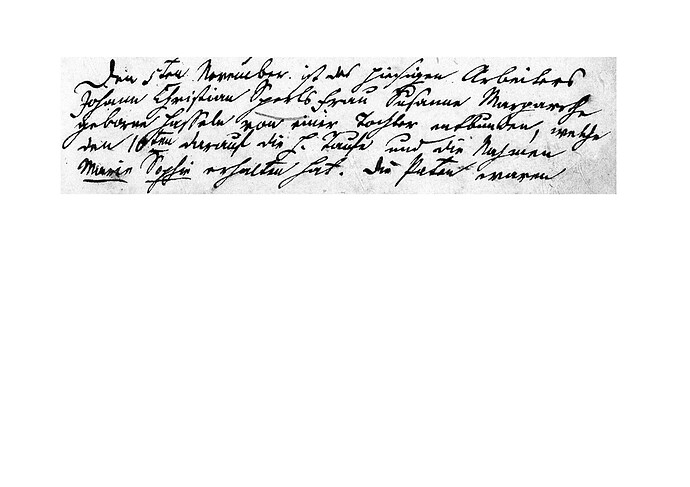 Den 5ten November ist des hiesigen Arbeiters
Johann Christian Sperls Frau Susanne Margarethe
geborne Hasseln von einer Tochter entbunden, welche
den 10ten darauf die h. Taufe und die Nahmen
Marie Sophie erhalten hat. Die Paten waren